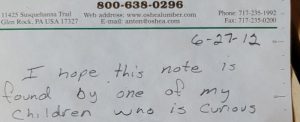 800-638-0296
11425 Susquehanna Trail Web address: www.oshealumber.com Phone: 717-235-1992
Glen Rock, PA USA 17327 E-mail: Fax: 717-235-0200
6-27-12
I hope this note is
found by one of my
children who is curious